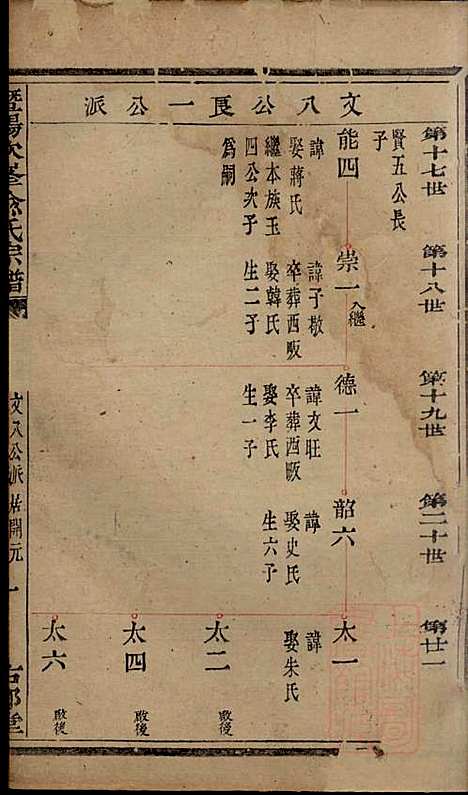 文八公良一公派
第十七世
第十八世
第十九世
第二十世
第廿一
賢五公長
子
能四
諱
娶蔣氏
繼本族玉
四公次子
為嗣
崇一
入繼
諱子敬
卒葬西畈
娶韓氏
生二子
德一
諱文旺
卒葬西畈
娶李氏
生一子
韶六
諱
娶史氏
生六子
太一
諱
娶朱氏
太二
啟後
太四
啟後
太六
啟後
氏宗譜
文八公派
開元
一
堂